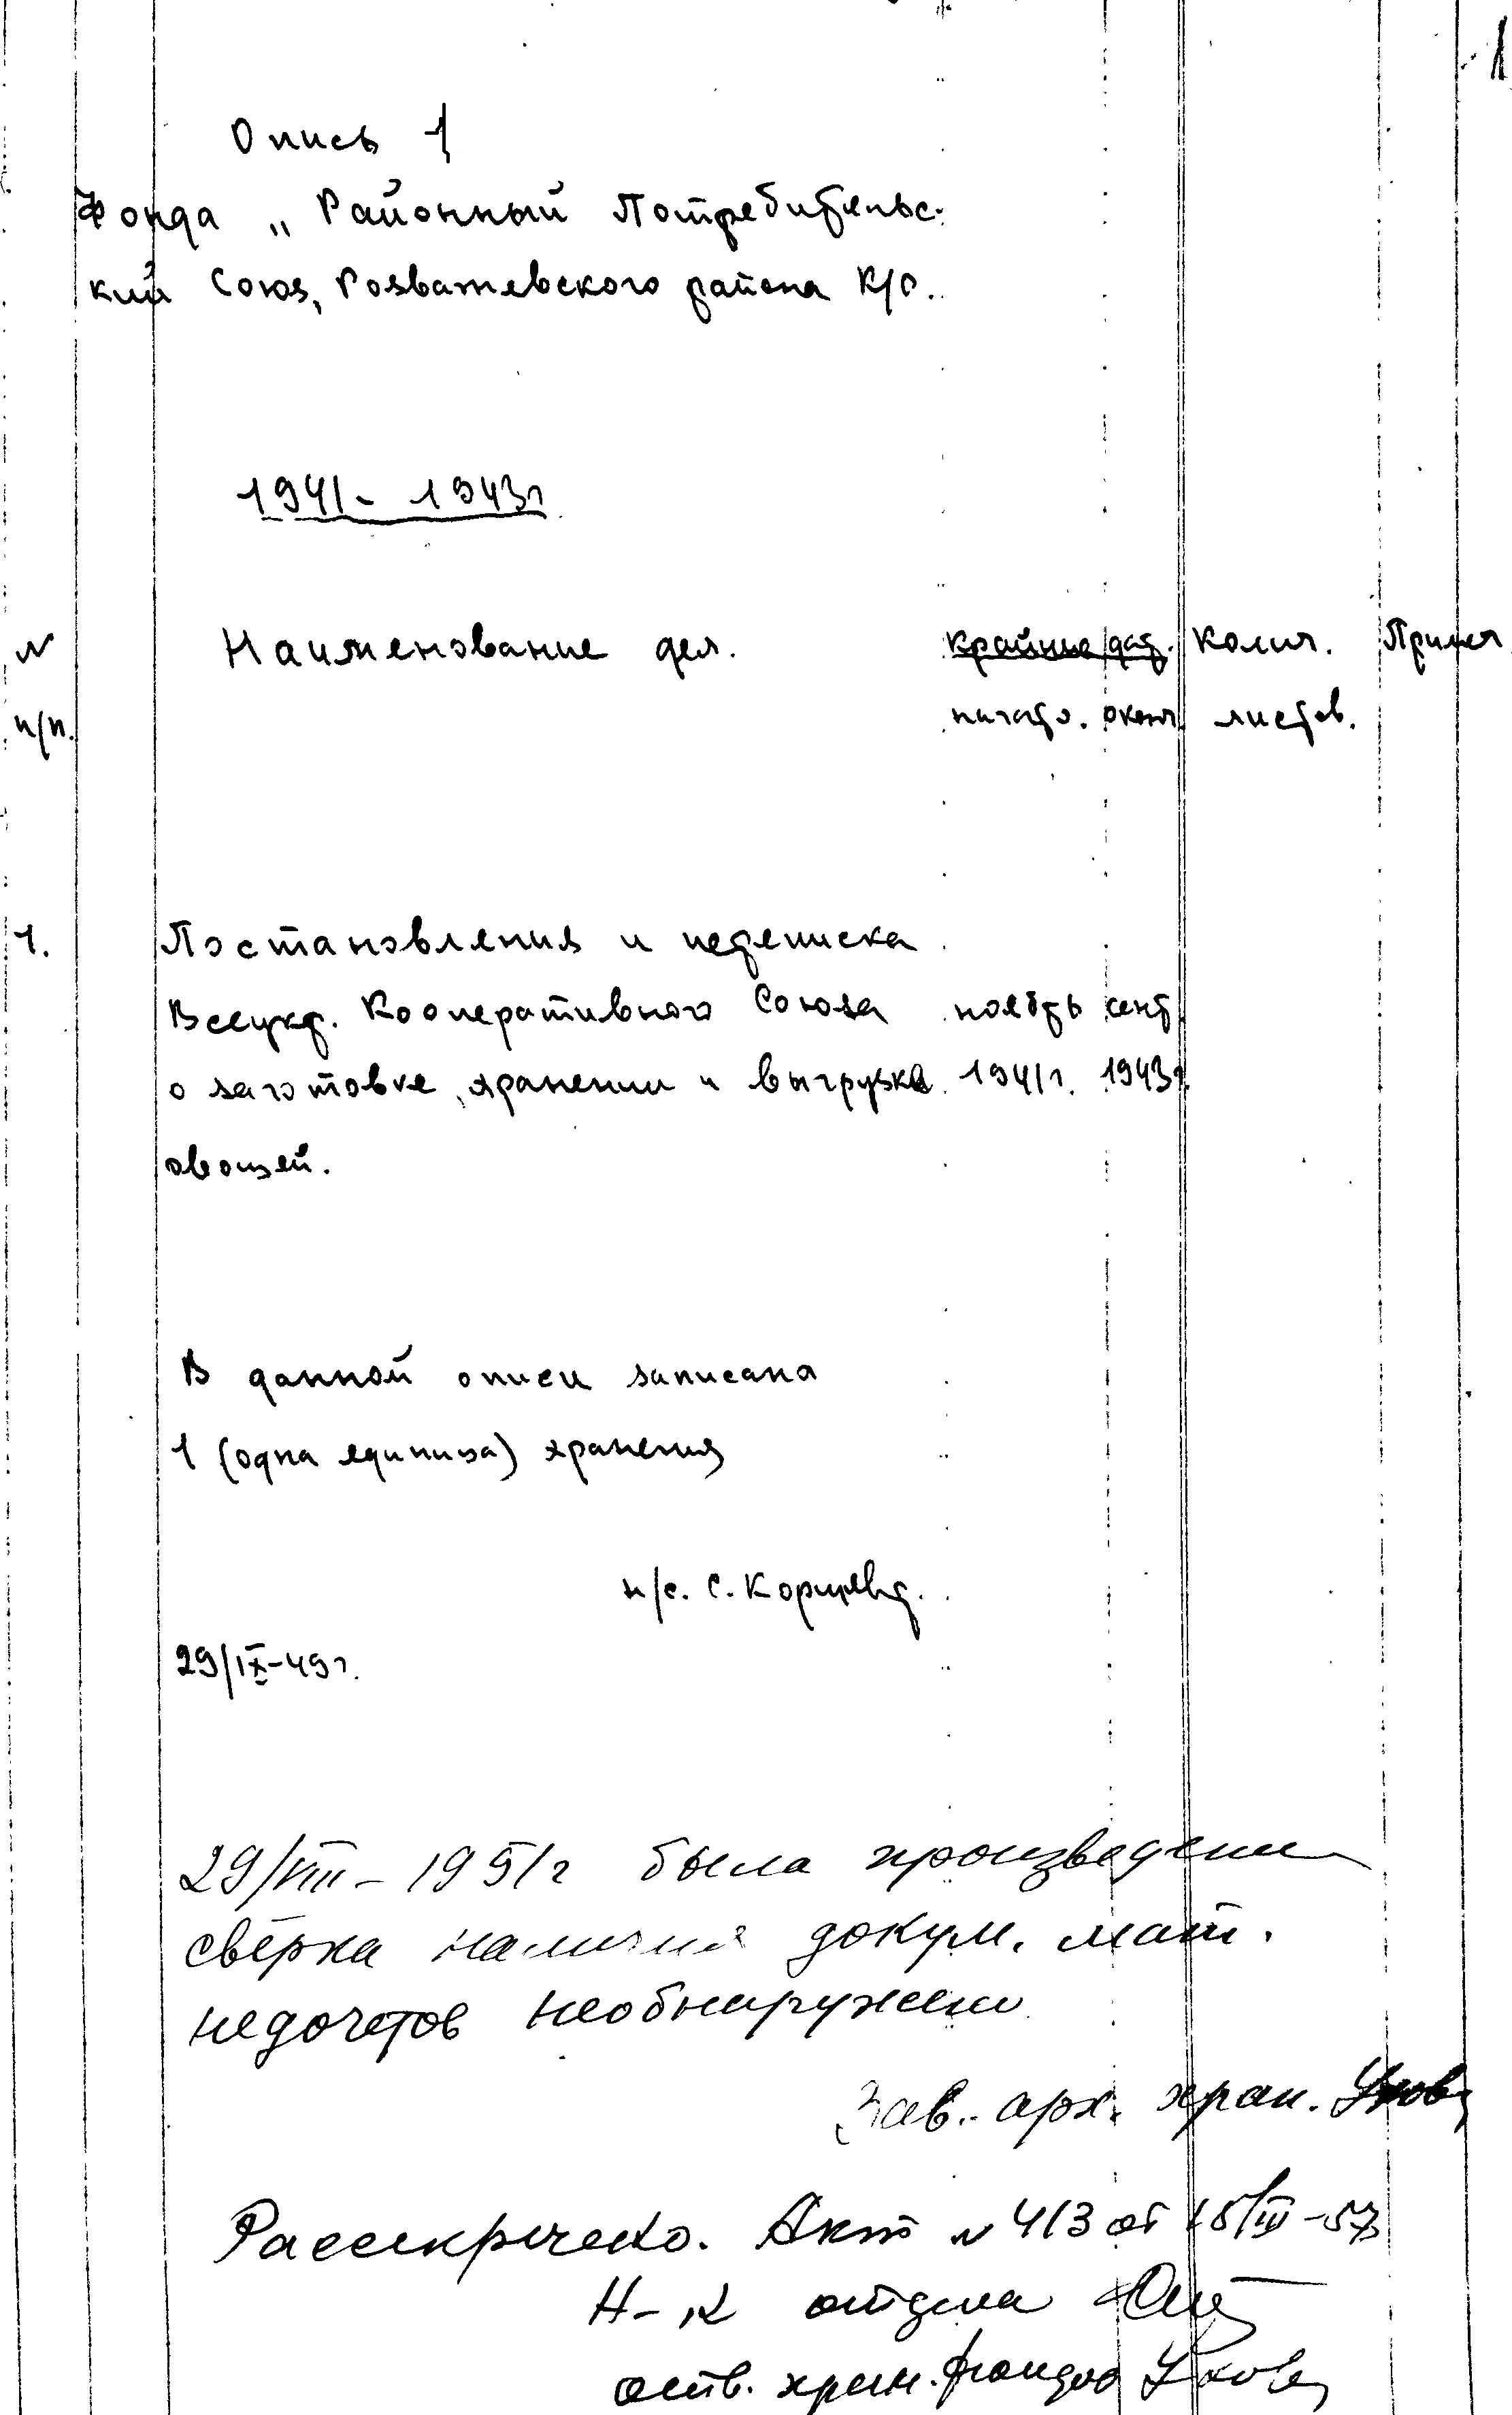 1
Опись 1
Фонда „Районный Потребительс-
кий Союз, Розважевского района К/О.
1941 - 1943г
№ Наименование дел. крайние дат. Колич. Примеч
п/п. начало. оконч. листов.
1. Постановления и переписка
Всеукр. Кооперативного Союза ноябрь сент.
о заготовке, хранении и выгрузке 1941г. 1943г.
овощей.
В данной описи записана
1 (одна единица) хранения
н/с. С.
29/IX-49г.
29/VIII - 1951г была произведена
сверка наличия докум. мат.
недочетов необнаружено
Зав. арх. хран.
Рассекречено. Акт № 413 от 15/III-57
Н-к отдела
отв. хран. фондов